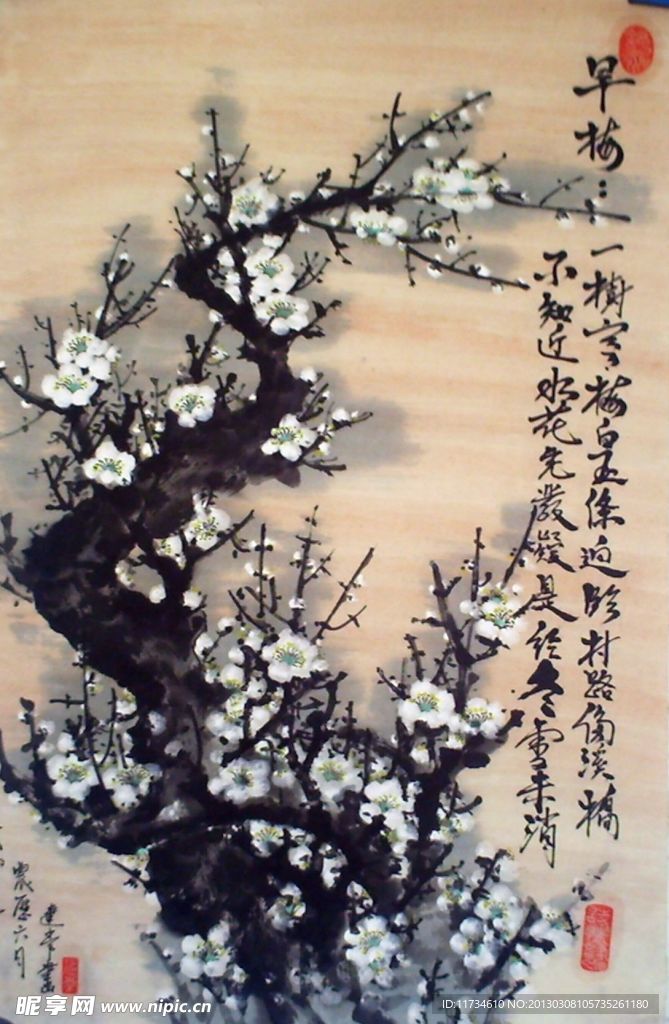 早梅：一樹寒梅白玉條迥临村路傍溪橋
不知近水花先發疑是经冬雪未消
農歷六月
昵享网 www.nipic.cn
ID:11734610 NO:20130308105735261180